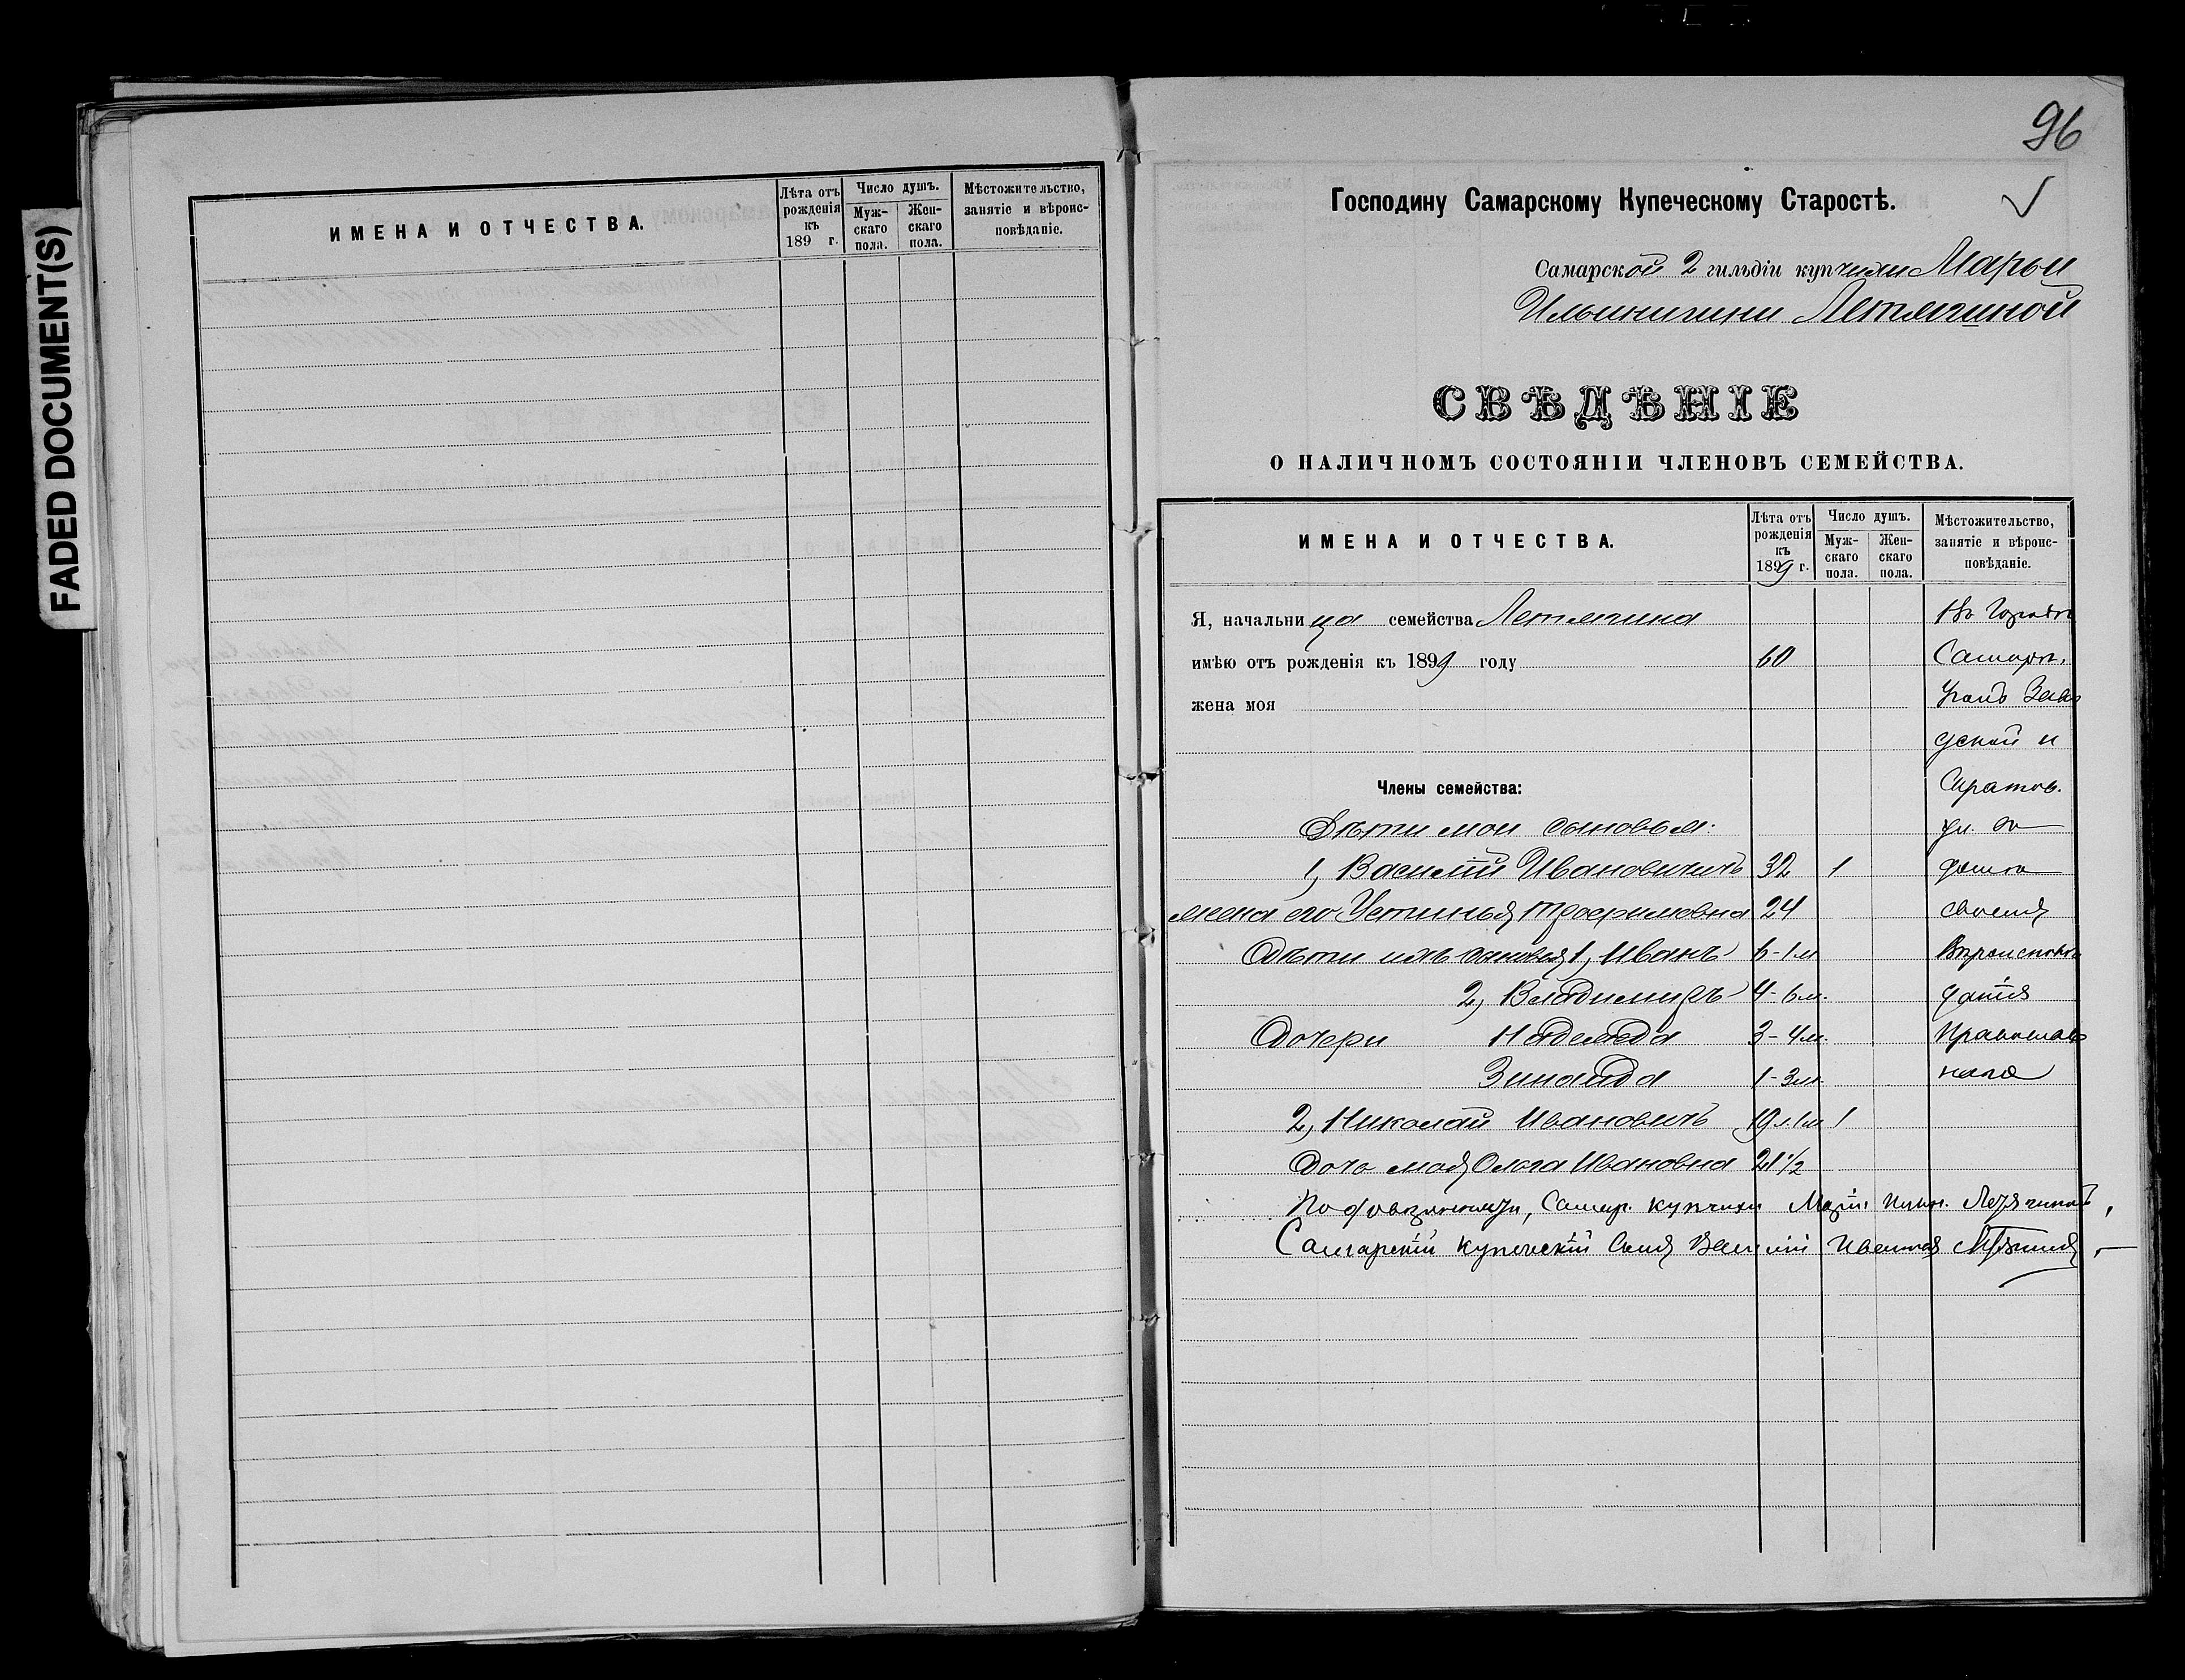 FADED DOCUMENT(S)
ИМЕНА И ОТЧЕСТВА.
Лѣта отъ рожденія къ 189 г.
Число душъ.
Муж-скаго пола.
Жен-скаго пола.
Мѣстожительство, занятіе и вѣроис-повѣданіе.
96
Господину Самарскому Купеческому Старостѣ.
Самарской 2 гильдіи купчихи Марьи
Ильиничны Летягиной
СВѢДѢНІЕ
О НАЛИЧНОМЪ СОСТОЯНІИ ЧЛЕНОВЪ СЕМЕЙСТВА.
ИМЕНА И ОТЧЕСТВА.
Лѣта отъ рожденія къ 1899 г.
Число душъ.
Муж-скаго пола.
Жен-скаго пола.
Мѣстожительство, занятіе и вѣроис-повѣданіе.
Я, начальница семейства Летягина Въ Городѣ
имѣю отъ рожденія къ 1899 году 60 Самарѣ,
жена моя Уголъ Заво
дской и
Члены семейства: Саратов.
Дѣти мои сыновья: ул. въ
1, Василій Ивановичъ 32 1 домѣ
жена его Устинья Трофимовна 24 своемъ
Дѣти ихъ сыновья 1, Иванъ 6-1м Вѣроисповѣ
2, Владимиръ 4-6м. данія
Дочери Надежда 3-4м. Православ
Зинаида 1-3м. наго
2, Николай Ивановичъ 19л.1м 1
Дочь моя Ольга Ивановна 21 1/2
По довѣренности, Самар. купчихи Маріи Ильин. Летягиной,
Самарскій купеческій Сынъ Василій Ивановъ Летягинъ